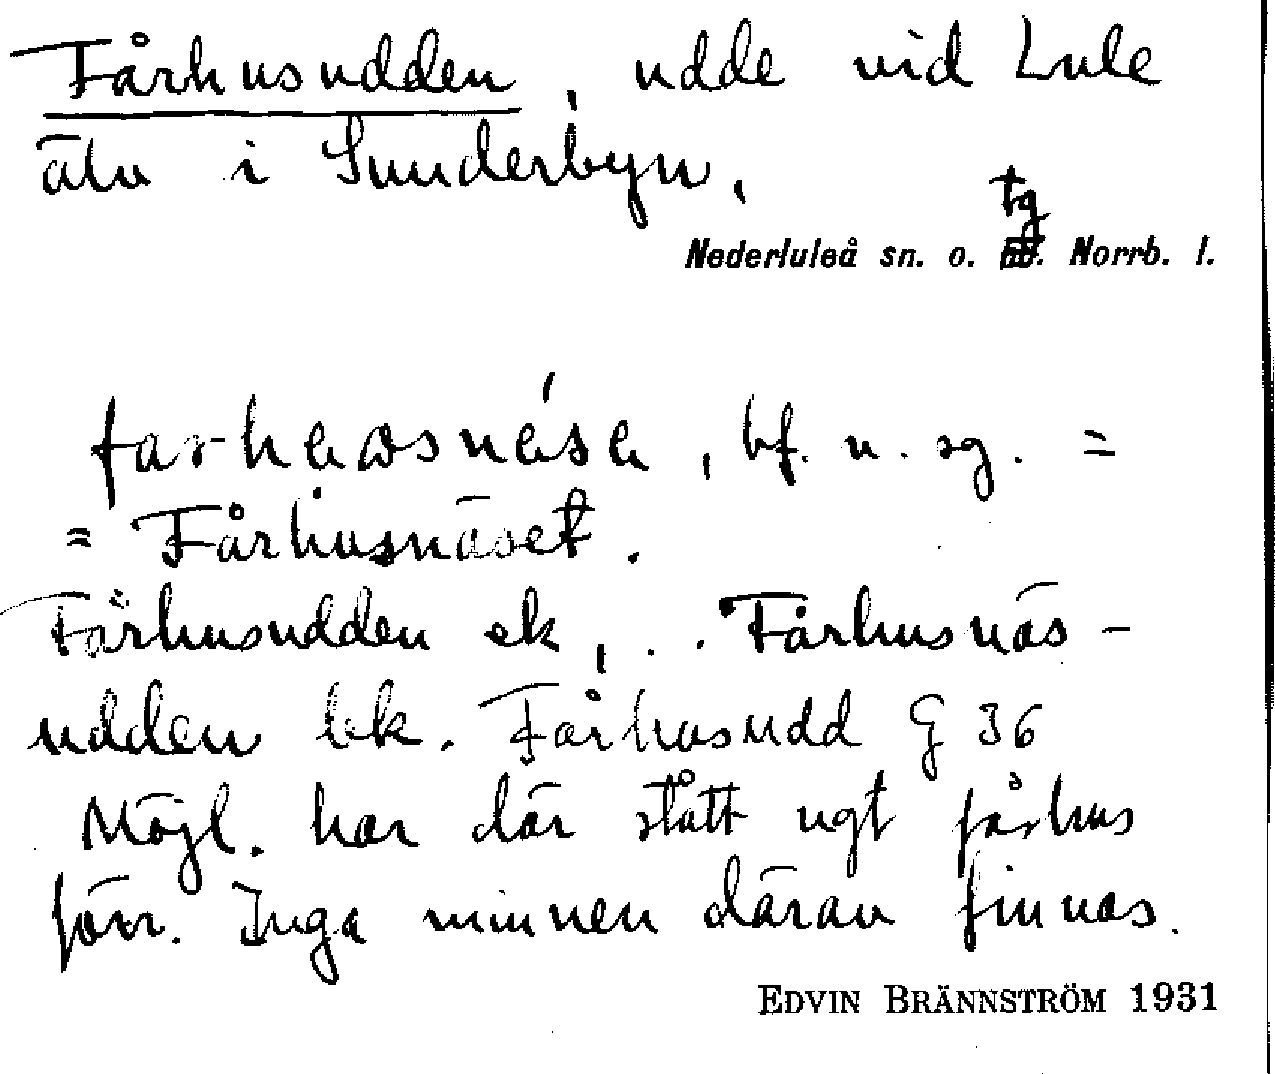 Fårhusudden, udde vid Lule
älv i Sunderbyn,
tg
Nederluleå sn. o. Norrb. l.
bf. n. sg. =
= Fårhusnäset.
Fårhusudden ek, . . Fårhusnäs-
udden bk. Fårhusudd G 36
Möjl. har där stått ngt fårhus
förr. Inga minnen därav finnas.
EDVIN BRÄNNSTRÖM 1931